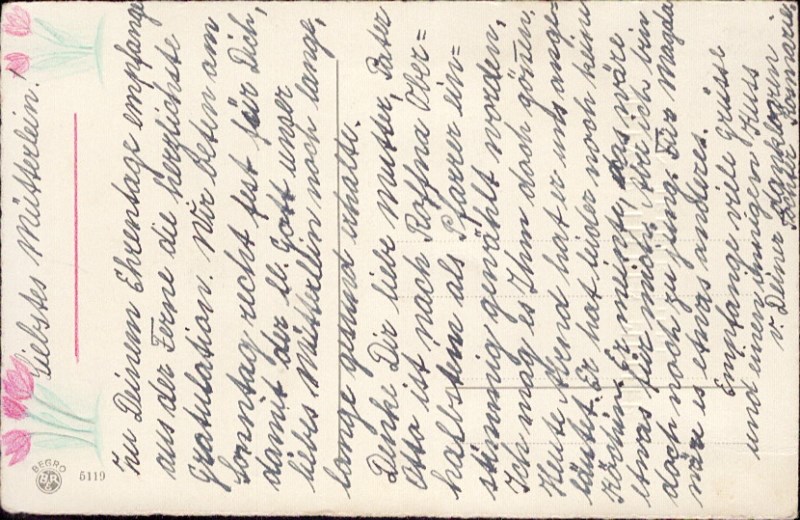 Liebstes Mütterlein!
Zu Deinem Ehrentage empfange
aus der Ferne die herzlichste
Gratulation. Wir beten am
Sonntag recht fest für Dich,
damit der lb. Gott unser
liebes Mütterlein noch lange,
lange gesund erhalte.
Denke Dir liebe Mutter, Pater
Otto ist nach Roffna Ober=
halbstein als Pfarrer ein=
stimmig gewählt worden,
Ich mag es Ihm doch gönnen,
Heute Abend hat er uns ange-
läutet. Er hat leider noch keine
Köchin. Er meinte, das wäre
etwas für mich. Aber ich bin
doch noch zu jung. Für Magda
wäre es etwas anderes.
Empfange viele Grüsse
und einen innigen Kuss
v. Deiner dankbaren
BEGRO
5119